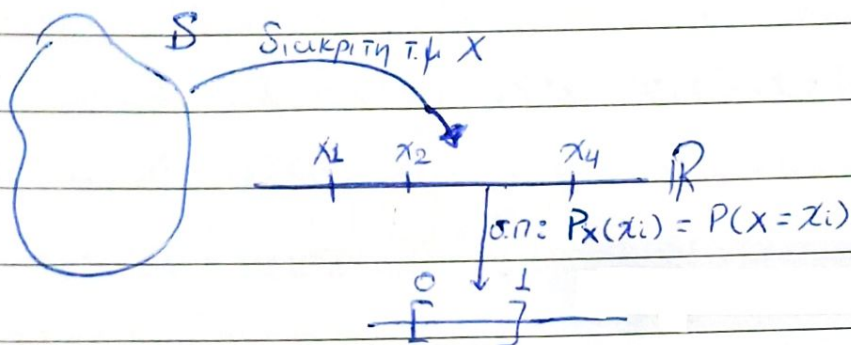 S διακριτη τ.μ X
x1 x2 x4 ℝ
σ.π: Px(xi) = P(X = xi)
0 1